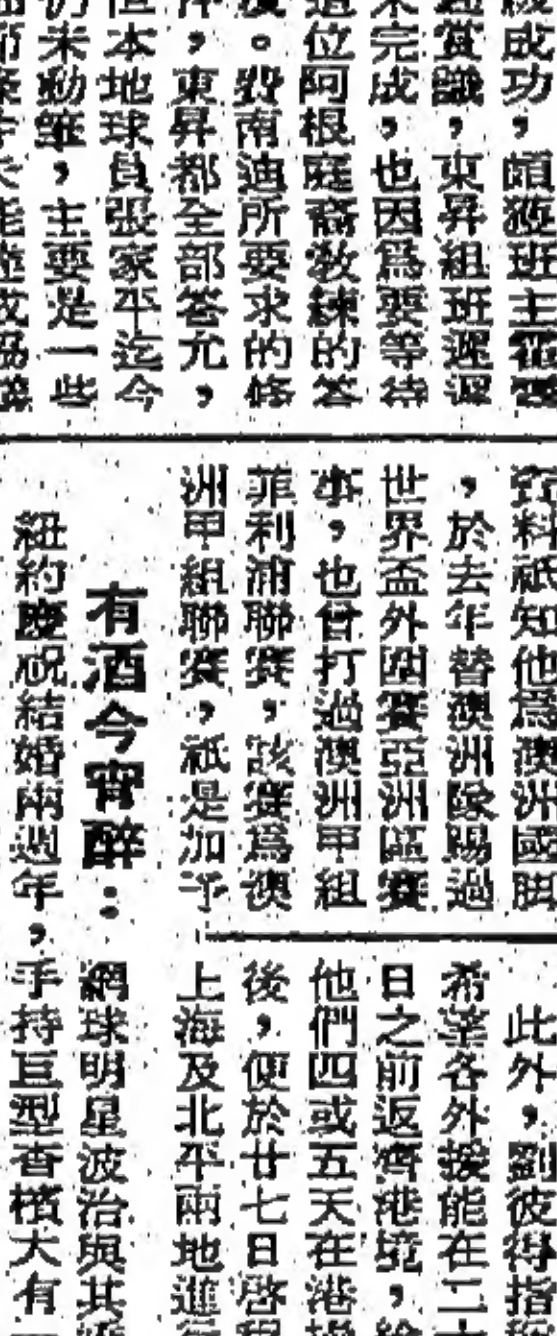 級成功，頗獲班主霍
賞識，東昇組班遲遲
未完成，也因為要等待
這位阿根庭裔教練的答
。費南迪所要求的條
，東昇都全部答允，
但本地球員張家平迄今
仍未動筆，主要是一些
資料祇知他為澳洲國脚
，於去年替澳洲隊踢過
世界盃外圍賽亞洲區賽
事，也曾打過澳洲甲組
菲利浦聯賽，該賽為澳
洲甲組聯賽，祇是加
此外，劉彼得指
希望各外援能在二
日之前返齊港境，
他們四或五天在港
後，便於廿七日啓程
上海及北平兩地進行
有酒今宵醉：網球明星波治與其
紐約慶祝結婚兩週年，手持巨型香檳大有